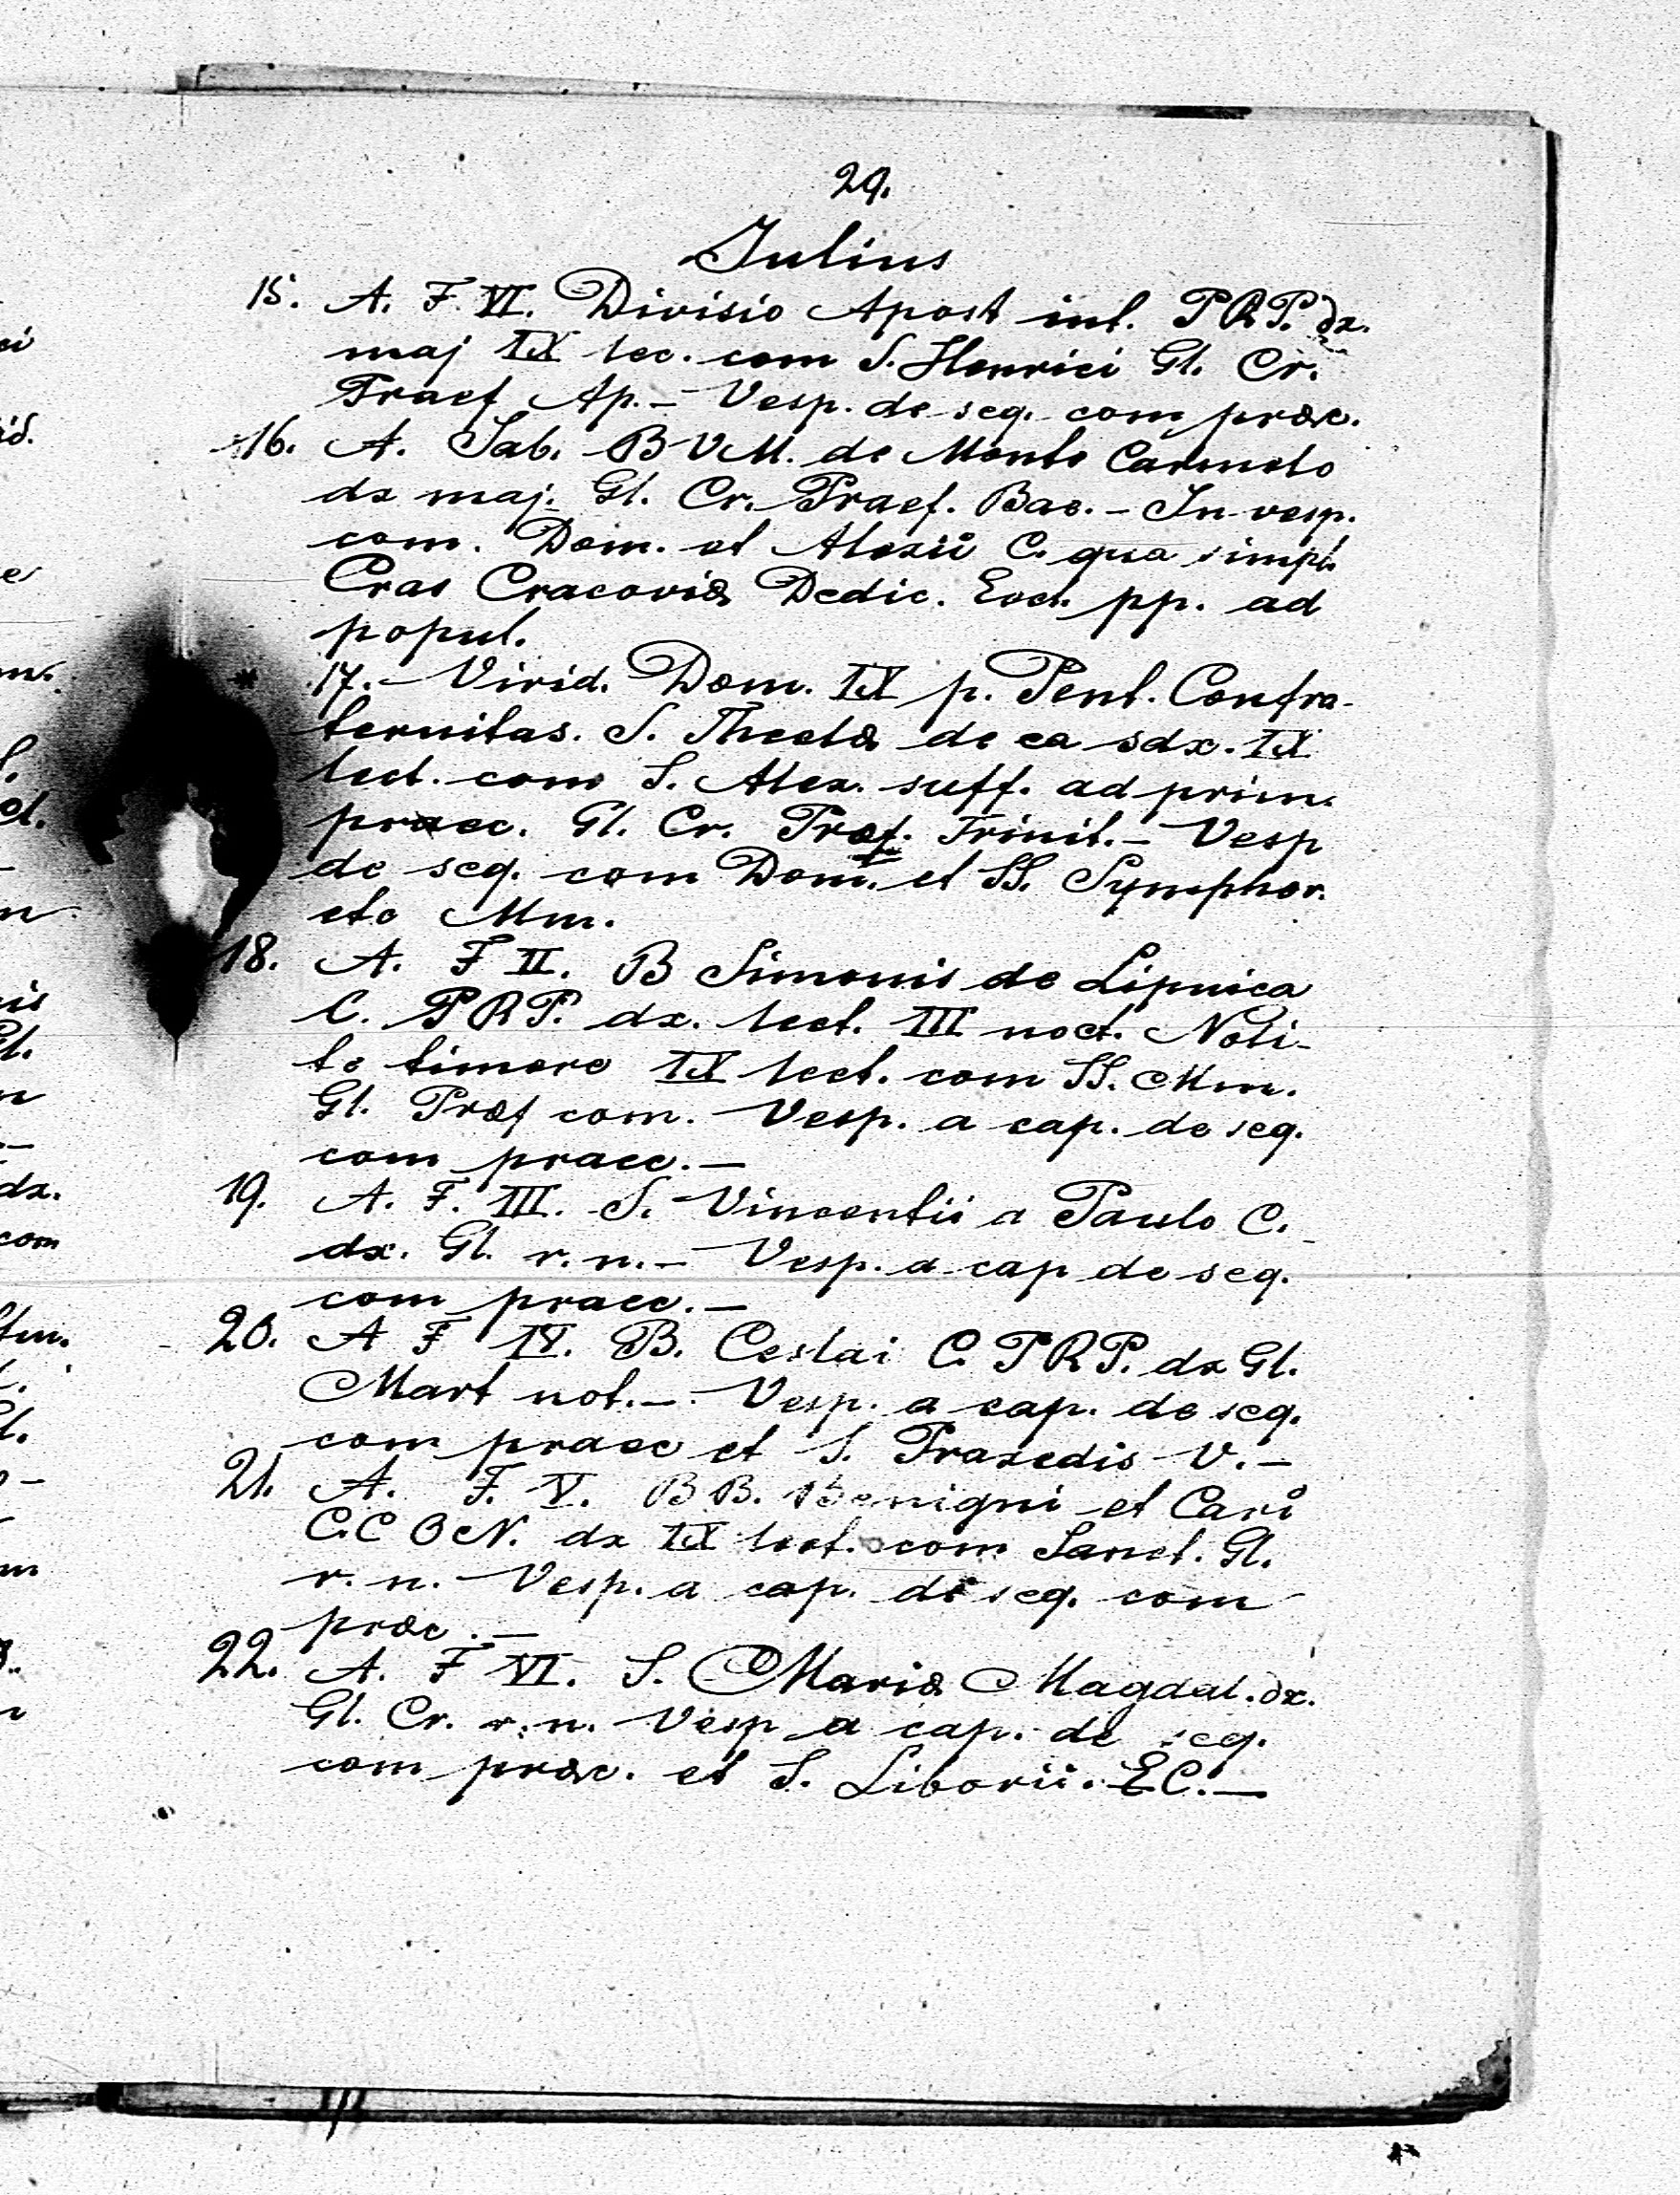 29.
Julius
15. A. F. VI. Divisio Apost int. P.R.P. dx.
maj IX lec. com S. Henrici Gl. Cr.
Praef Ap. – Vesp. de seq. com præc.
16. A. Sab. B V M. de Monte Carmelo
dx maj. Gl. Cr. Praef. Bae. – In vesp.
com. Dom. et Alexii C. qua simpl.
Cras Cracoviæ Dedic. Eccl. pp. ad
popul.
* 17. – Virid. Dom. IX p. Pent. Confra-
ternitas. S. Theclæ de ea sdx. IX
lect. com S. Alex. suff. ad prim.
praec. Gl. Cr. Præf. Trinit. – Vesp
de seq. com Dom. et SS. Symphor.
etc Mm.
18. A. F II. B Simonis de Lipnica
C. P R P. dx. lect. III noct. Noli-
te timere IX lect. com SS. Mm.
Gl. Præf com. Vesp. a cap. de seq.
com praec. –
19. A. F. III. S. Vincentii a Paulo C.
dx. Gl. r. n. – Vesp. a cap de seq.
com praec. –
20. A F IV. B. Ceslai C. P R P. dx Gl.
Mart not. – Vesp. a cap. de seq.
com praec et S. Praxedis V. –
21. A. F. V. B B. Benigni et Cari
C.C O N. dx IX lect. com Sanct. Gl.
r. n. Vesp. a cap. de seq. com
præc. –
22. A. F VI. S. Mariæ Magdal. dx.
Gl. Cr. r. n. Vesp a cap. de seq.
com præc. et S. Liborii. E C. –